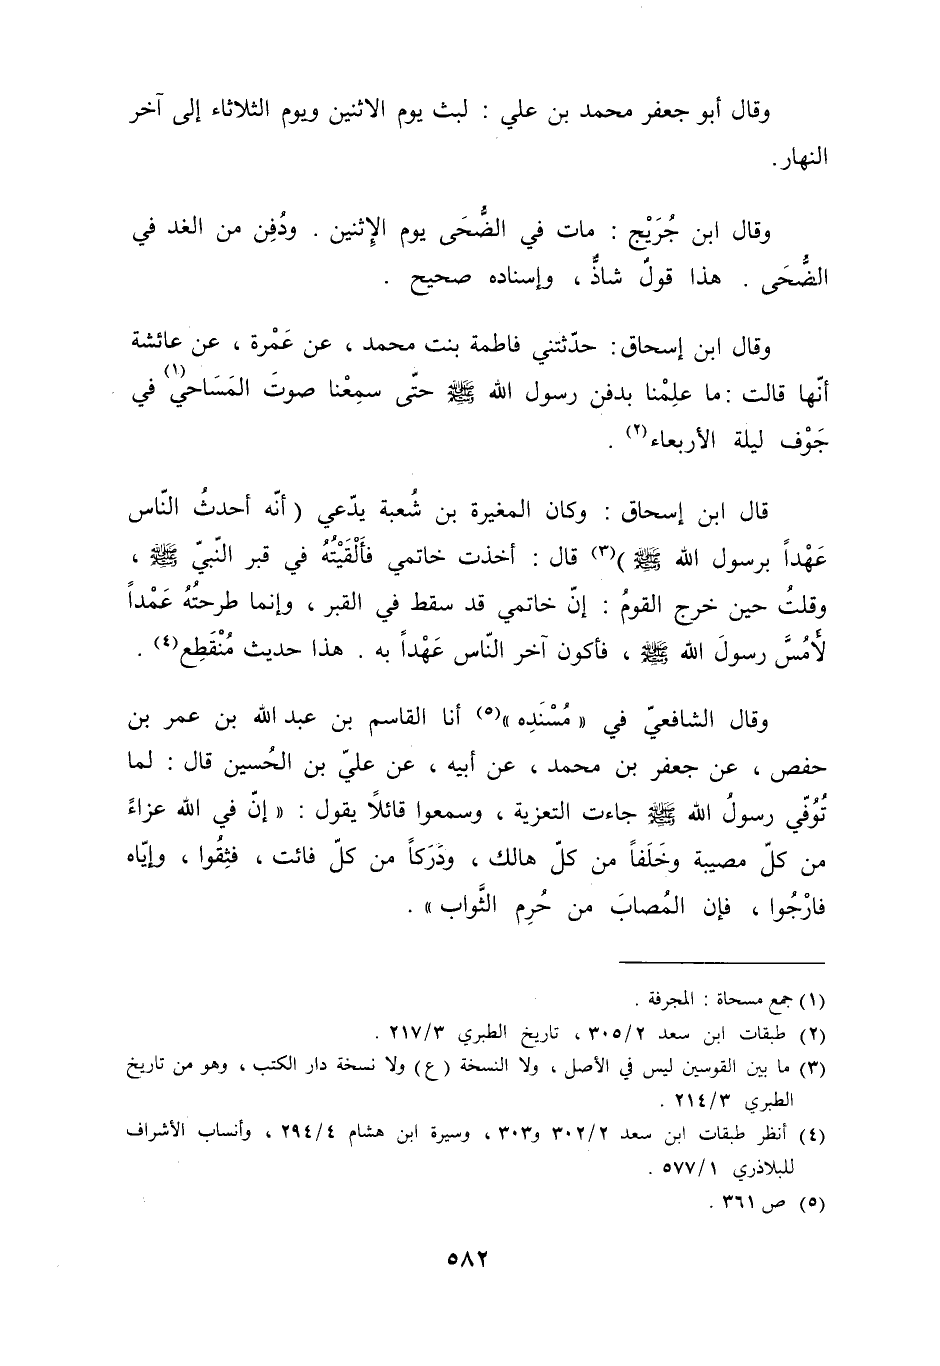 وقال أبو جعفر محمد بن علي : لبث يوم الاثنين ويوم الثلاثاء إلى آخر
النهار.
وقال ابن جُرَيْج : مات في الضُّحَى يوم الإِثنين . ودُفِن من الغد في
الضُّحَى . هذا قولٌ شاذٌّ ، وإسناده صحيح .
وقال ابن إسحاق: حدّثتني فاطمة بنت محمد ، عن عَمْرة ، عن عائشة
أنّها قالت : ما علِمْنا بدفن رسول الله ﷺ حتّى سمِعْنا صوتَ المَسَاحي(١) في
جَوْف ليلة الأربعاء(٢) .
قال ابن إسحاق : وكان المغيرة بن شُعبة يدّعي ( أنّه أحدثُ النّاس
عَهْداً برسول الله ﷺ )(٣) قال : أخذت خاتمي فألْقَيْتُهُ في قبر النّبيّ ﷺ ،
وقلتُ حين خرج القومُ : إنّ خاتمي قد سقط في القبر ، وإنما طرحتُهُ عَمْداً
لأَمُسَّ رسولَ الله ﷺ ، فأكون آخر النّاس عَهْداً به . هذا حديث مُنْقَطِع(٤) .
وقال الشافعيّ في « مُسْنَدِه »(٥) أنا القاسم بن عبد الله بن عمر بن
حفص ، عن جعفر بن محمد ، عن أبيه ، عن عليّ بن الحُسين قال : لما
تُوُفّي رسولُ الله ﷺ جاءت التعزية ، وسمعوا قائلًا يقول : « إنّ في الله عزاءً
من كلّ مصيبة وخَلَفاً من كلّ هالك ، ودَرَكاً من كلّ فائت ، فثِقُوا ، وإيّاه
فارْجُوا ، فإن المُصابَ من حُرِم الثَّواب » .
(١) جمع مسحاة : المجرفة .
(٢) طبقات ابن سعد ٣٠٥/٢ ، تاريخ الطبري ٢١٧/٣ .
(٣) ما بين القوسين ليس في الأصل ، ولا النسخة (ع) ولا نسخة دار الكتب ، وهو من تاريخ
الطبري ٢١٤/٣ .
(٤) أنظر طبقات ابن سعد ٣٠٢/٢ و٣٠٣ ، وسيرة ابن هشام ٢٩٤/٤ ، وأنساب الأشراف
للبلاذري ٥٧٧/١ .
(٥) ص ٣٦١ .
٥٨٢